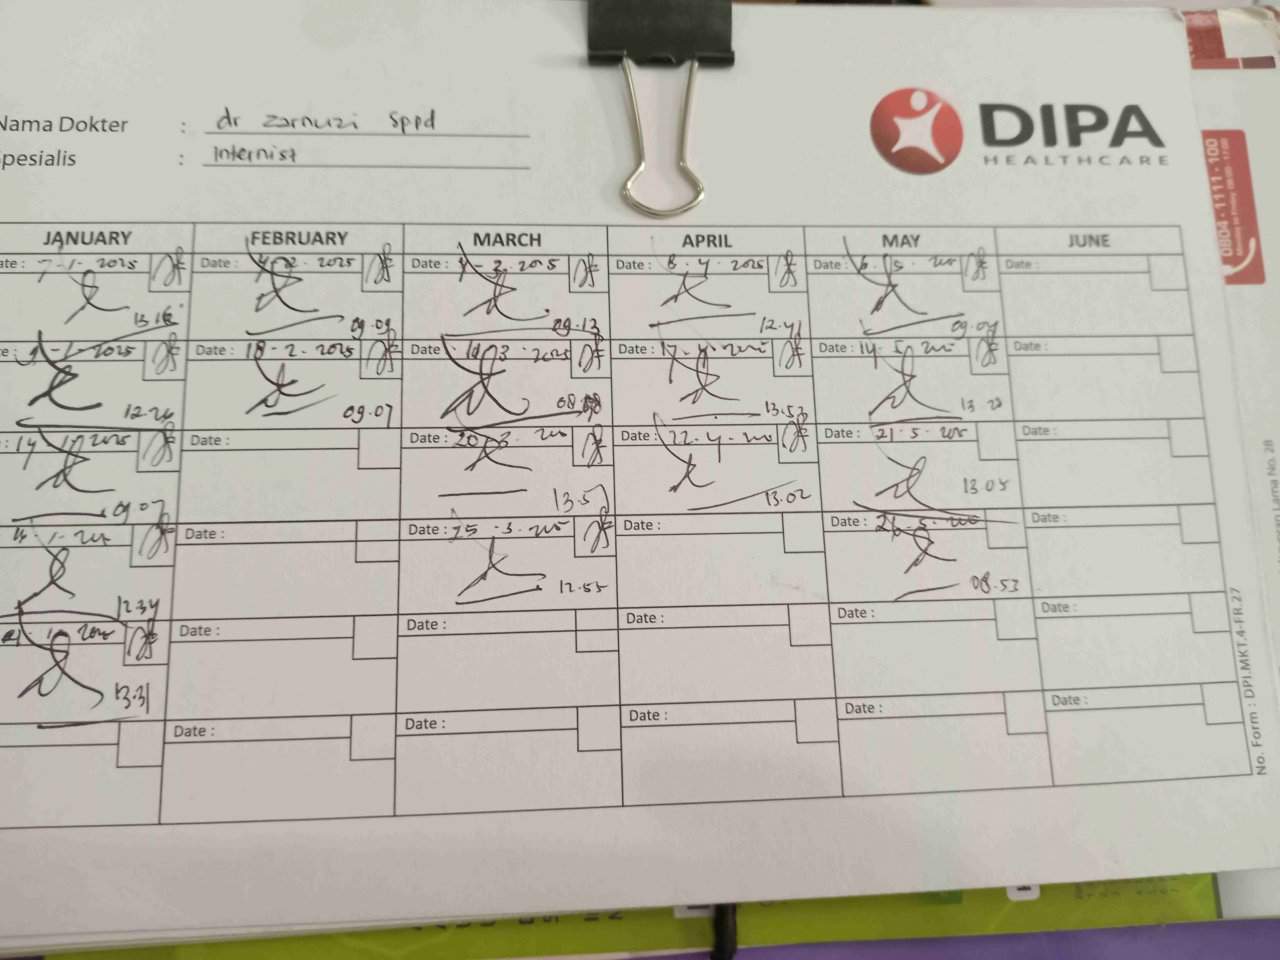 Nama Dokter : dr zarnuzi Sppd
Spesialis : Internist
DIPA
HEALTHCARE
0804-1111-100
JANUARY FEBRUARY MARCH APRIL MAY JUNE
Date: 7-1-2025 Date: 2-2025 Date: 3-2025 Date: 8-4-2025 Date: 6-5- Date:
13.16 09.09 09.13 12.41 09.04
1-2025 Date: 18-2-2025 Date: 3-2025 Date: 17-4- Date: 14-5- Date:
12.26 09.07 08. 13.53 13.20
14 2025 Date: Date: 20-3- Date: 22-4- Date: 21-5- Date:
09.07 13.5 13.02 13.05
1- Date: Date: 25-3- Date: Date: 26-5- Date:
12.34 12.55 08.53
Date: Date: Date: Date: Date:
13.31
Date: Date: Date: Date: Date:
No. Form : DPI.MKT.4-FR.27